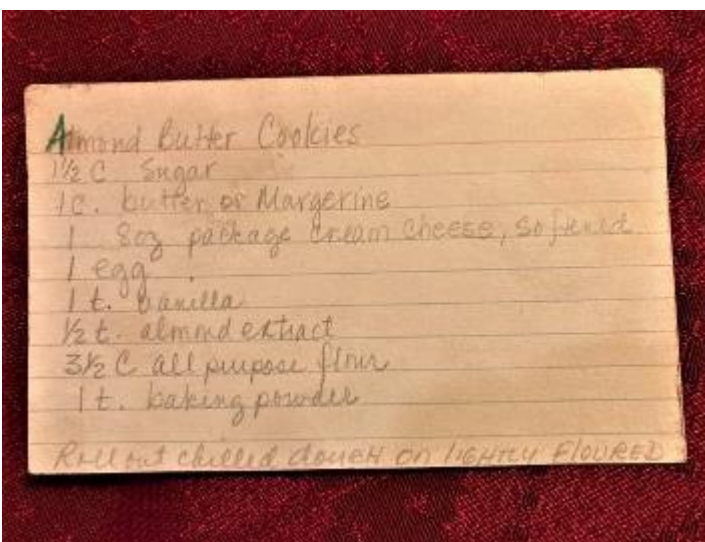 Almond Butter Cookies
1½ C Sugar
1c. butter or Margerine
1 8oz package cream cheese, softened
1 egg
1 t. vanilla
½ t. almond extract
3½ C all purpose flour
1 t. baking powder
Roll out chilled dough on lightly FLOURED